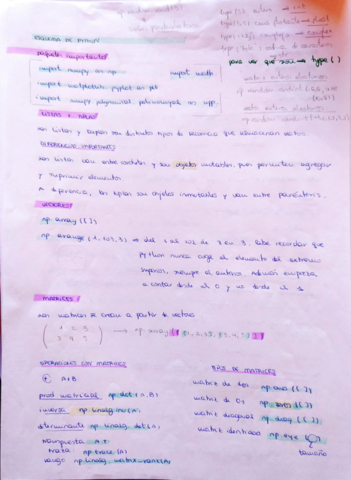 ESQUEMA DE PYTHON
para ver que son → type( )
paquetes importantes
import numpy as np
import math
import matplotlib.pyplot as plt
import numpy.polynomial.polynomial as npp
LISTAS Y TUPLAS
son listas y tuplas son distintos tipos de secuencia que almacenan
DIFERENCIAS IMPORTANTES
las listas van entre corchetes y son objetos mutables, pues permiten agregar
y suprimir elementos
A diferencia, las tuplas son objetos inmutables y van entre paréntesis.
VECTORES
np.array([ ])
np.arange(1,103,3) → del 1 al 102 de 3 en 3. Cabe recordar que
python nunca coge el elemento del extremo
superior, siempre el anterior. Además empieza
a contar desde el 0 y no desde el 1
MATRICES
las matrices se crean a partir de vectores
( 1 2 3
3 4 5 ) → np.array([[1,2,3],[3,4,5]])
OPERACIONES CON MATRICES
TIPOS DE MATRICES
+ A+B
matriz de 1os np.ones([ ])
prod matricial np.dot(A,B)
matriz de 0s np.zeros([ ])
inversa np.linalg.inv(A)
matriz diagonal np.diag([ ])
determinante np.linalg.det(A)
matriz identidad np.eye( )
traspuesta A.T
tamaño
traza np.trace(A)
rango np.linalg.matrix_rank(A)